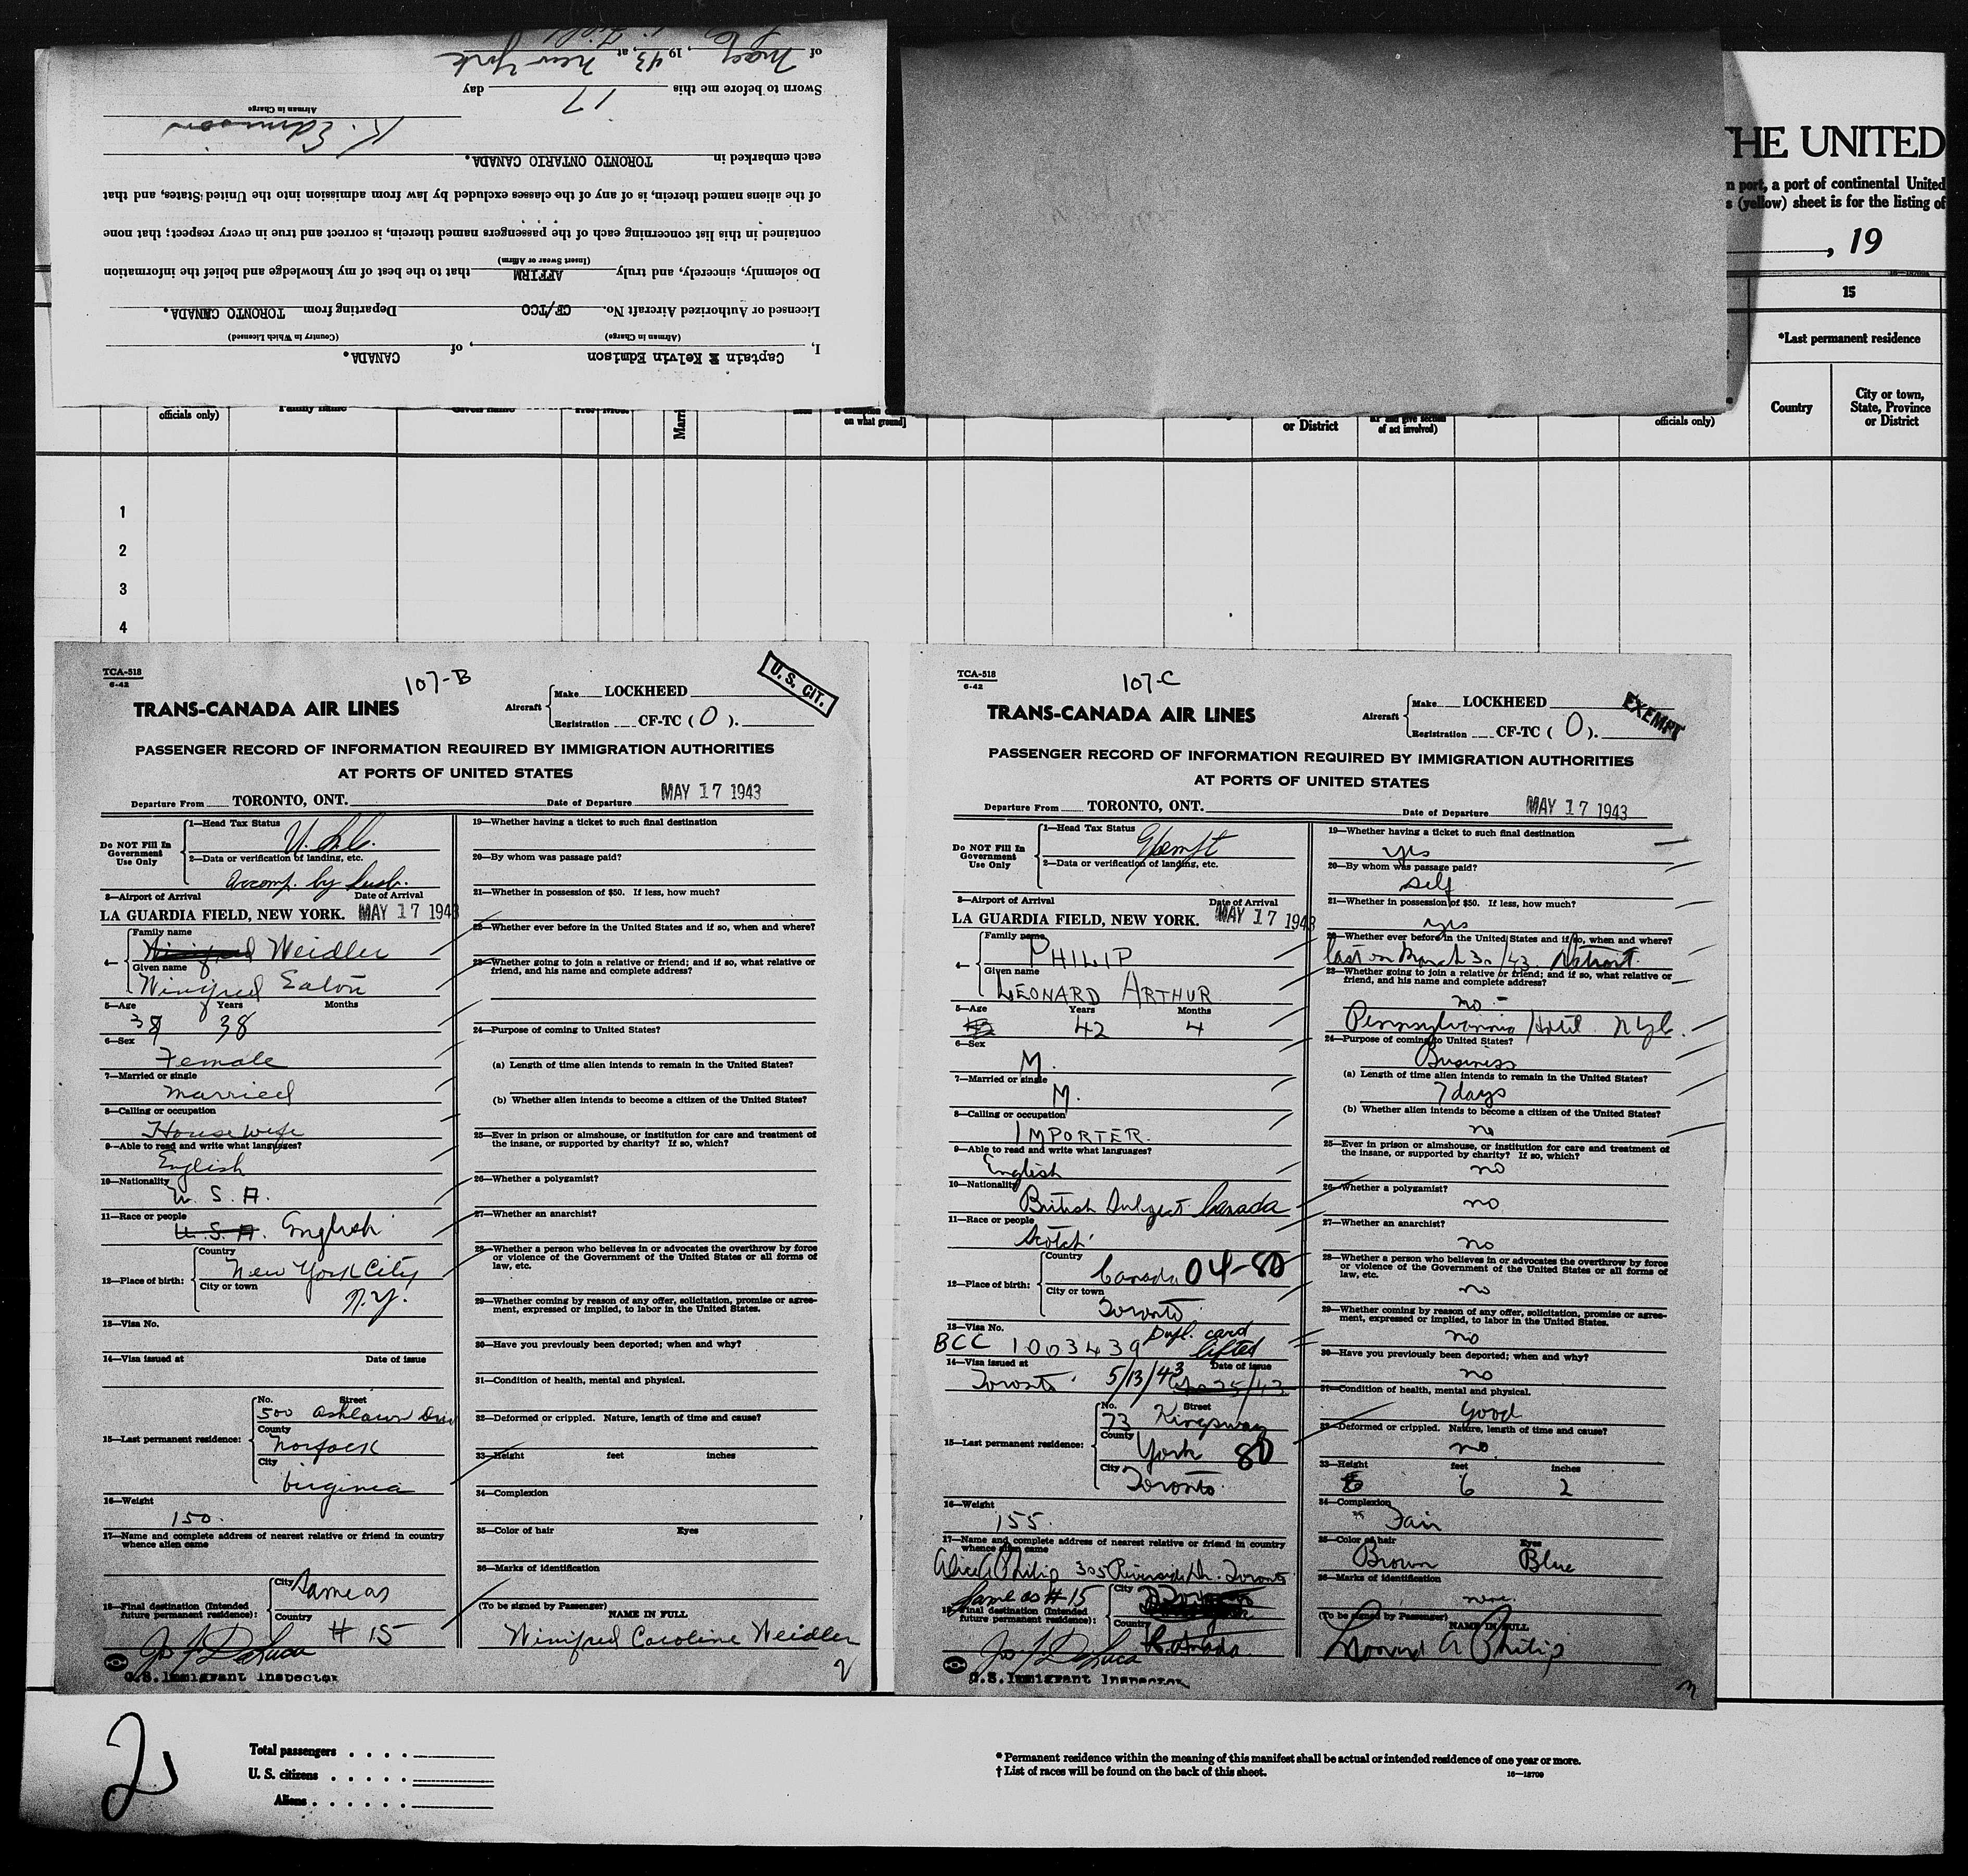 I, Captain K Kelvin Edmison , of CANADA.
(Airman in Charge) (Country in Which Licensed)
Licensed or Authorized Aircraft No. CF/TCO Departing from TORONTO CANADA.
Do solemnly, sincerely, and truly AFFIRM that to the best of my knowledge and belief the information
(Insert Swear or Affirm)
contained in this list concerning each of the passengers named therein, is correct and true in every respect; that none
of the aliens named therein, is of any of the classes excluded by law from admission into the United States, and that
each embarked in TORONTO ONTARIO CANADA.
K. Edmison
Airman in Charge
Sworn to before me this 17 day
of May , 19 43, at New York
THE UNITED
n port, a port of continental United
s (yellow) sheet is for the listing of
, 19
15
*Last permanent residence
Country
City or town, State, Province or District
officials only)
Family name
Given name
Yrs. Mos.
Marri
on what ground]
or District
of act involved)
officials only)
1
2
3
4
TCA-518
6-42
107-B
U. S. CIT.
TRANS-CANADA AIR LINES
Aircraft
Make LOCKHEED
Registration CF-TC ( O ).
PASSENGER RECORD OF INFORMATION REQUIRED BY IMMIGRATION AUTHORITIES
AT PORTS OF UNITED STATES
Departure From TORONTO, ONT. Date of Departure MAY 17 1943
Do NOT Fill In Government Use Only
1—Head Tax Status
2—Data or verification of landing, etc.
Accomp. by husb.
3—Airport of Arrival Date of Arrival
LA GUARDIA FIELD, NEW YORK. MAY 17 1943
4—
Family name
Winifred Weidler
Given name
Winifred Eaton
5—Age Years Months
38
6—Sex
Female
7—Married or single
Married
8—Calling or occupation
Housewife
9—Able to read and write what languages?
English
10—Nationality
U. S. A.
11—Race or people
U. S. A. English
12—Place of birth:
Country
New York City
City or town
N.Y.
13—Visa No.
14—Visa issued at Date of issue
15—Last permanent residence:
No. Street
500 Ashlawn Driv
County
Norfolk
City
Virginia
16—Weight
150.
17—Name and complete address of nearest relative or friend in country whence alien came
18—Final destination (Intended future permanent residence):
City Same as
Country # 15
Jos J DeLuca
U.S. Immigrant Inspector
19—Whether having a ticket to such final destination
20—By whom was passage paid?
21—Whether in possession of $50. If less, how much?
22—Whether ever before in the United States and if so, when and where?
23—Whether going to join a relative or friend; and if so, what relative or friend, and his name and complete address?
24—Purpose of coming to United States?
(a) Length of time alien intends to remain in the United States?
(b) Whether alien intends to become a citizen of the United States?
25—Ever in prison or almshouse, or institution for care and treatment of the insane, or supported by charity? If so, which?
26—Whether a polygamist?
27—Whether an anarchist?
28—Whether a person who believes in or advocates the overthrow by force or violence of the Government of the United States or all forms of law, etc.
29—Whether coming by reason of any offer, solicitation, promise or agreement, expressed or implied, to labor in the United States.
30—Have you previously been deported; when and why?
31—Condition of health, mental and physical.
32—Deformed or crippled. Nature, length of time and cause?
33—Height feet inches
34—Complexion
35—Color of hair Eyes
36—Marks of identification
(To be signed by Passenger) NAME IN FULL
Winifred Caroline Weidler
2
TCA-518
6-42
107-C
EXEMPT
TRANS-CANADA AIR LINES
Aircraft
Make LOCKHEED
Registration CF-TC ( O ).
PASSENGER RECORD OF INFORMATION REQUIRED BY IMMIGRATION AUTHORITIES
AT PORTS OF UNITED STATES
Departure From TORONTO, ONT. Date of Departure MAY 17 1943
Do NOT Fill In Government Use Only
1—Head Tax Status
Exempt
2—Data or verification of landing, etc.
3—Airport of Arrival Date of Arrival
LA GUARDIA FIELD, NEW YORK. MAY 17 1943
4—
Family name
PHILIP
Given name
LEONARD ARTHUR
5—Age Years Months
42 4
6—Sex
M.
7—Married or single
M.
8—Calling or occupation
IMPORTER.
9—Able to read and write what languages?
English
10—Nationality
British Subject Canada
11—Race or people
Scotch
12—Place of birth:
Country
Canada 04-80
City or town
Toronto
13—Visa No.
BCC 1003439 Dupl. card lifted
14—Visa issued at Date of issue
Toronto 5/13/43
15—Last permanent residence:
No. Street
73 Kingsway
County
York 80
City
Toronto.
16—Weight
155.
17—Name and complete address of nearest relative or friend in country whence alien came
Alice A Philip 305 Riverside Dr. Toronto
Same as # 15
18—Final destination (Intended future permanent residence):
City
Country
Canada.
Jos J DeLuca
U.S. Immigrant Inspector
19—Whether having a ticket to such final destination
yes
20—By whom was passage paid?
self
21—Whether in possession of $50. If less, how much?
yes
22—Whether ever before in the United States and if so, when and where?
last on March 30/43 Detroit.
23—Whether going to join a relative or friend; and if so, what relative or friend, and his name and complete address?
no -
Pennsylvania Hotel NYC.
24—Purpose of coming to United States?
Business
(a) Length of time alien intends to remain in the United States?
7 days
(b) Whether alien intends to become a citizen of the United States?
no
25—Ever in prison or almshouse, or institution for care and treatment of the insane, or supported by charity? If so, which?
no
26—Whether a polygamist?
no
27—Whether an anarchist?
no
28—Whether a person who believes in or advocates the overthrow by force or violence of the Government of the United States or all forms of law, etc.
no
29—Whether coming by reason of any offer, solicitation, promise or agreement, expressed or implied, to labor in the United States.
no
30—Have you previously been deported; when and why?
no
31—Condition of health, mental and physical.
Good
32—Deformed or crippled. Nature, length of time and cause?
no
33—Height feet inches
6 2
34—Complexion
Fair
35—Color of hair Eyes
Brown Blue
36—Marks of identification
none.
(To be signed by Passenger) NAME IN FULL
Leonard A Philip
3
2
Total passengers . . . .
U. S. citizens . . . . .
Aliens . . . . . .
* Permanent residence within the meaning of this manifest shall be actual or intended residence of one year or more.
† List of races will be found on the back of this sheet.
16—18709